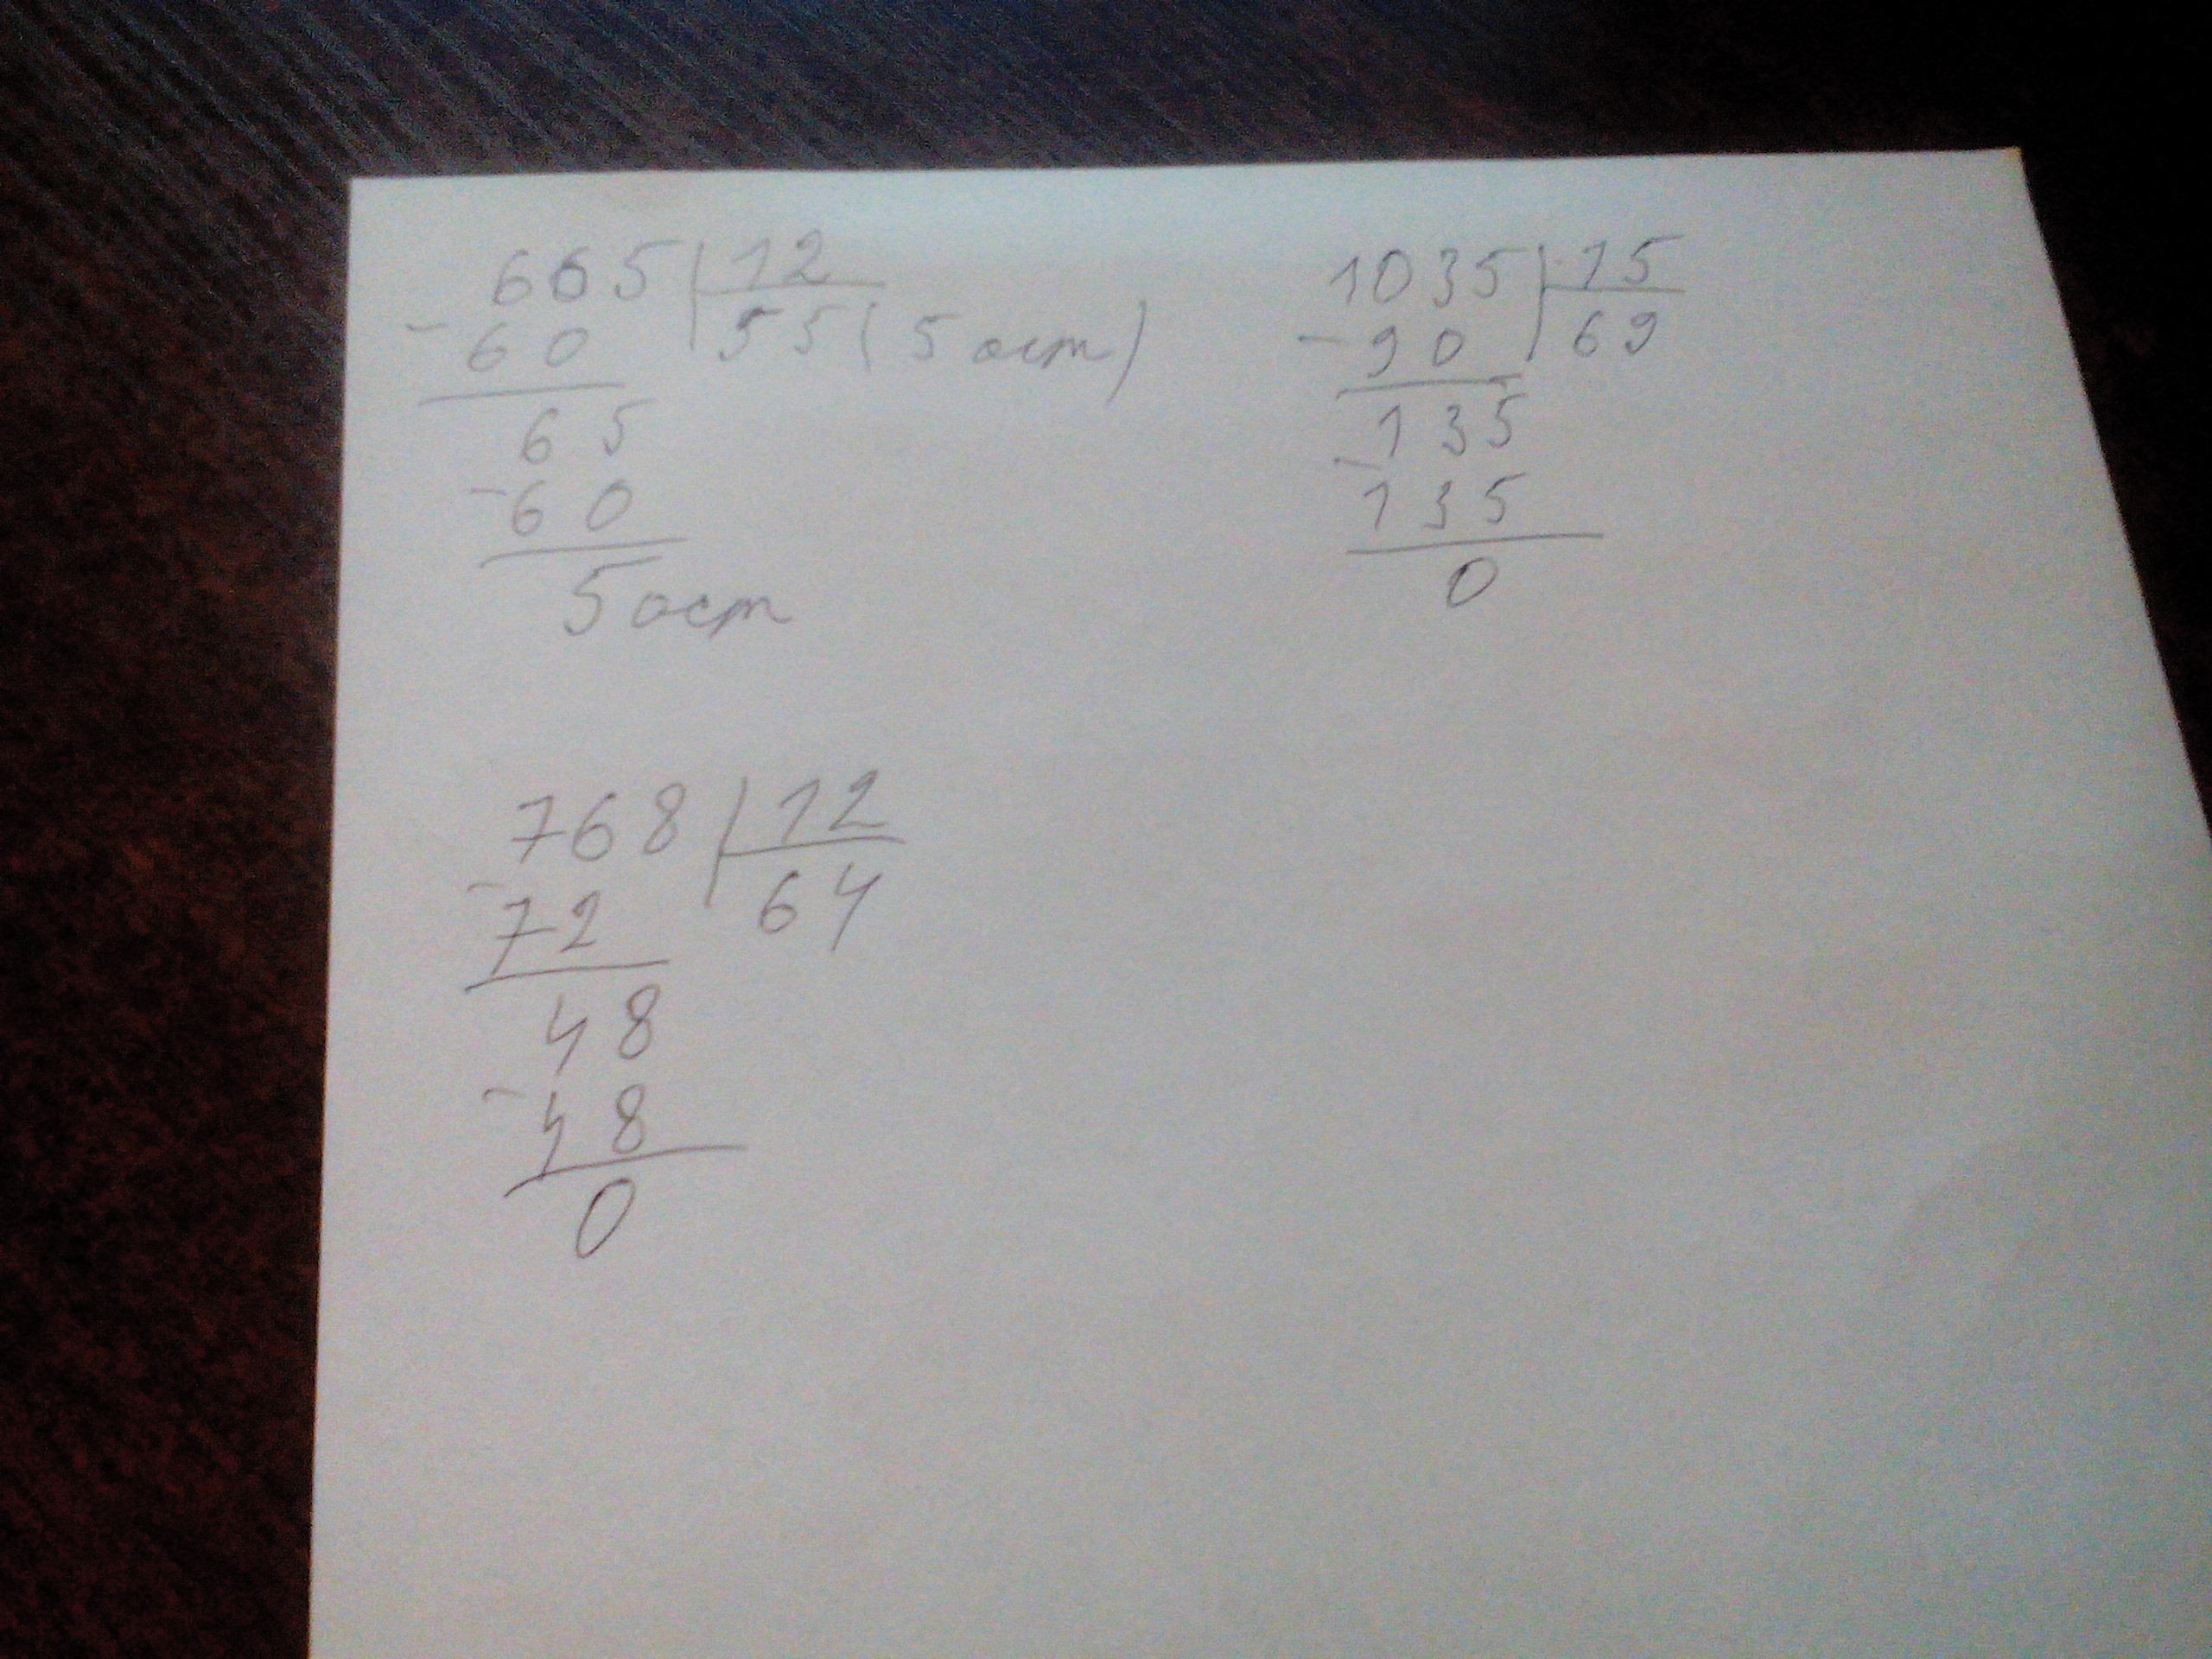 665 | 12
- 60 | 55 ( 5 ост )
65
- 60
5 ост
1035 | 15
- 90 | 69
135
- 135
0
768 | 12
- 72 | 64
48
- 48
0